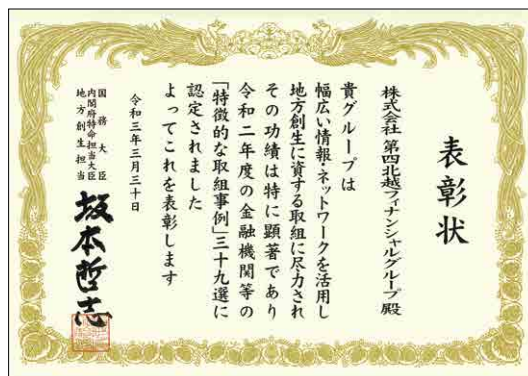 表彰状
株式会社 第四北越フィナンシャルグループ殿
貴グループは
幅広い情報・ネットワークを活用し
地方創生に資する取組に尽力され
その功績は特に顕著であり
令和二年度の金融機関等の
「特徴的な取組事例」三十九選に
認定されました
よってこれを表彰します
令和三年三月三十日
国務大臣
内閣府特命担当大臣
地方創生担当
坂本哲志